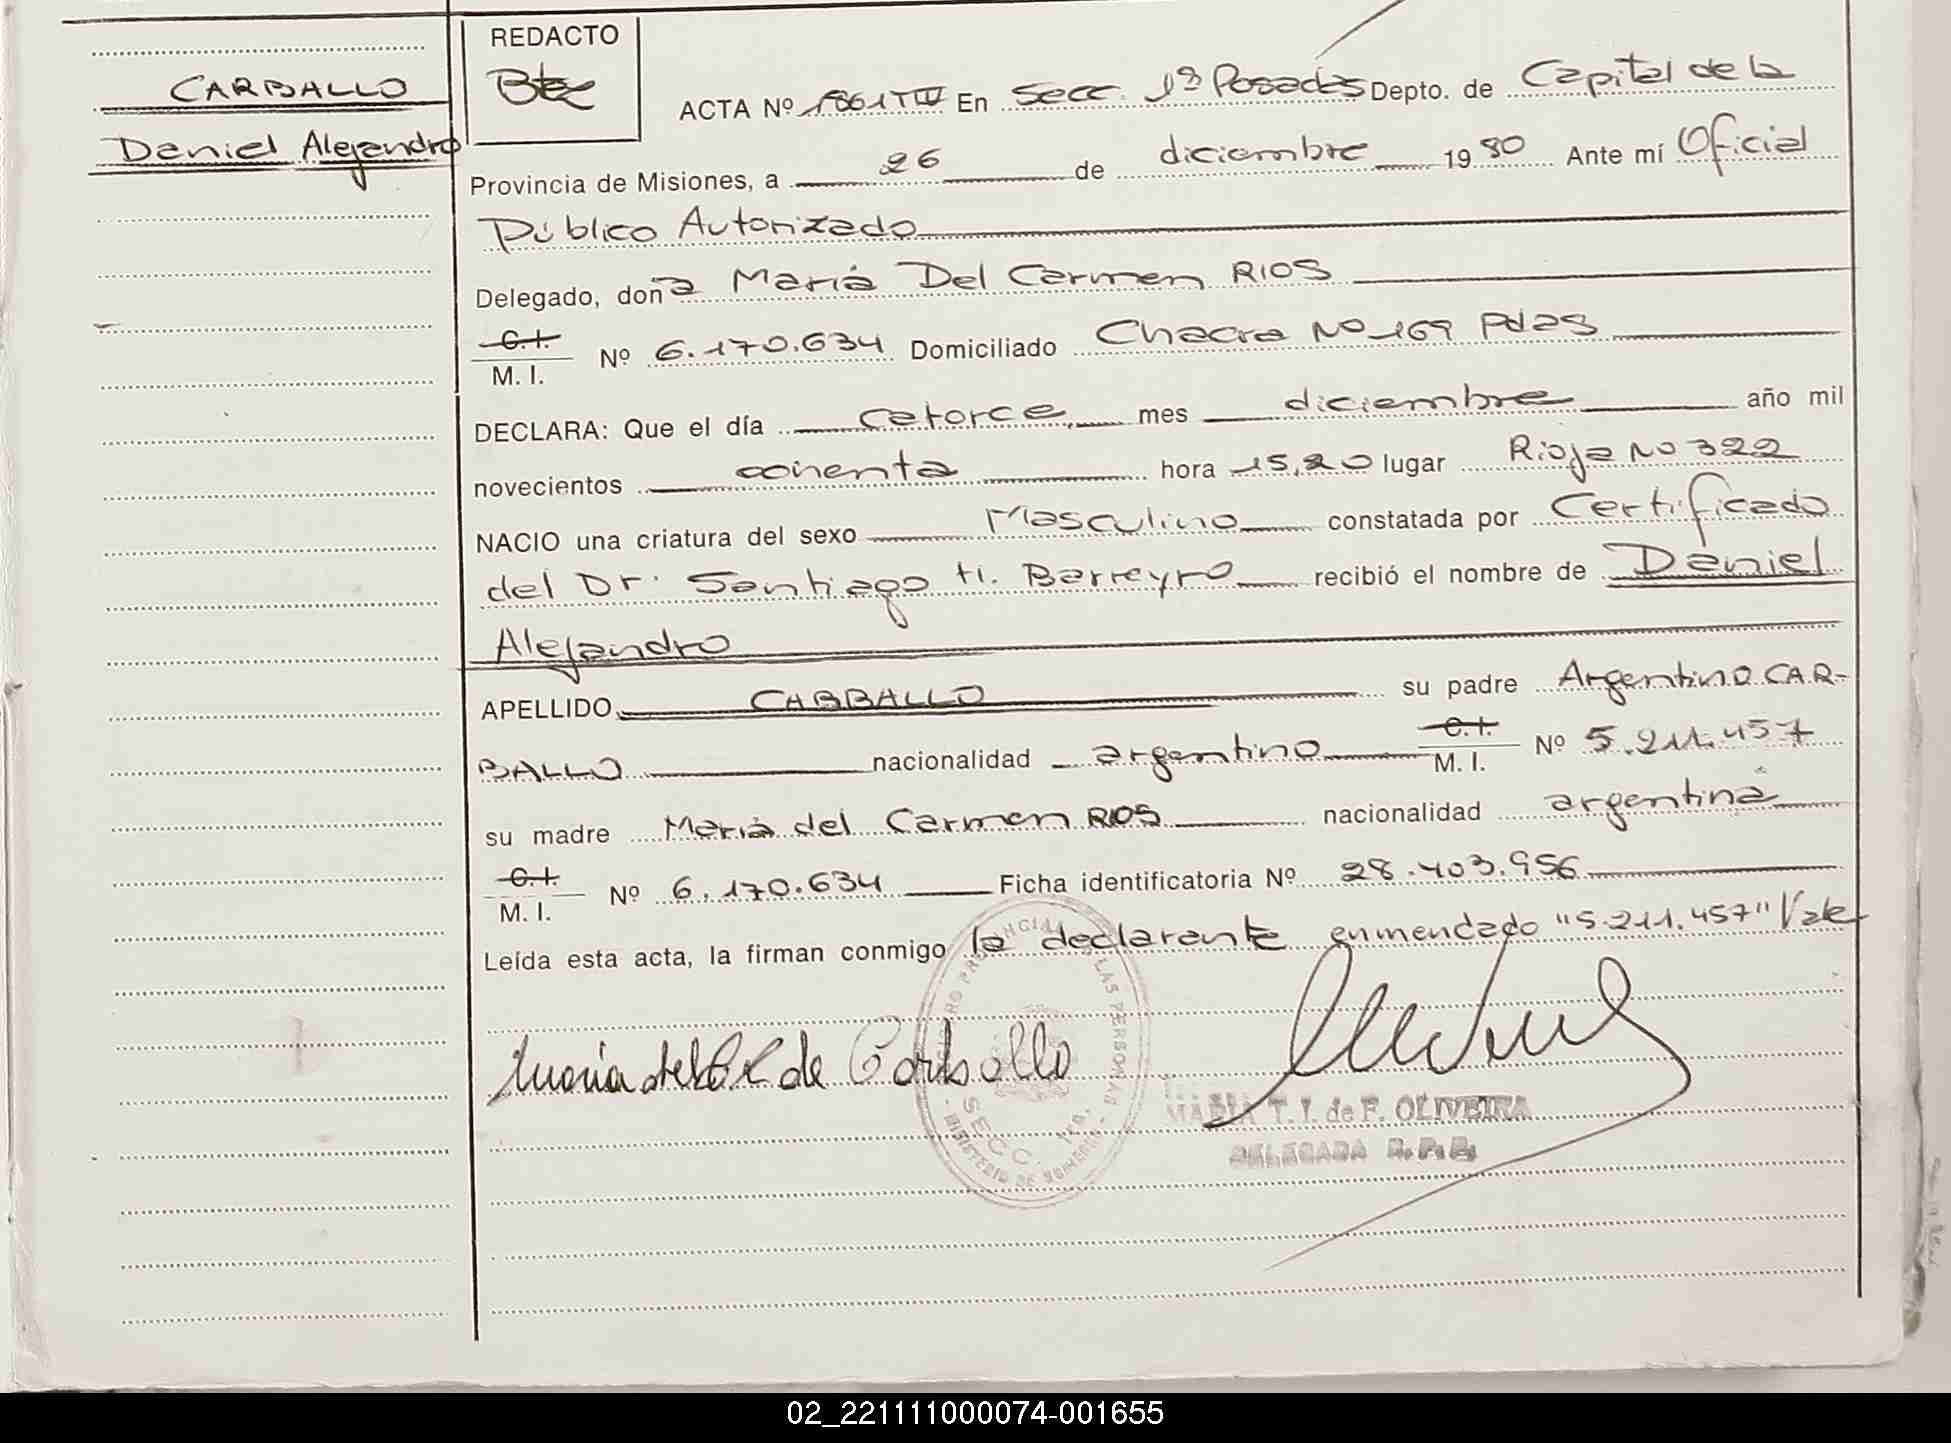 CARBALLO
Daniel Alejandro
REDACTO
ACTA Nº 1861 TIV En Secc. 1ª Posadas Depto. de Capital de la
Provincia de Misiones, a 26 de diciembre 1980 Ante mí Oficial
Público Autorizado
Delegado, doña María Del Carmen RIOS
C.I. M. I. Nº 6.170.634 Domiciliado Chacra Nº 169 Pdas
DECLARA: Que el día catorce mes diciembre año mil
novecientos ochenta hora 15,20 lugar Rioja Nº 322
NACIO una criatura del sexo Masculino constatada por Certificado
del Dr. Santiago H. Barreyro recibió el nombre de Daniel
Alejandro
APELLIDO CARBALLO su padre Argentino CAR-
BALLO nacionalidad argentino C.I. M. I. Nº 5.211.457
su madre María del Carmen RIOS nacionalidad argentina
C.I. M. I. Nº 6.170.634 Ficha identificatoria Nº 28.403.956
Leída esta acta, la firman conmigo la declarante enmendado "5.211.457" Vale
María del C R de Carballo
MARIA T. I. de F. OLIVEIRA
DELEGADA R.P.P.
SECC. 1ra.
02_221111000074-001655